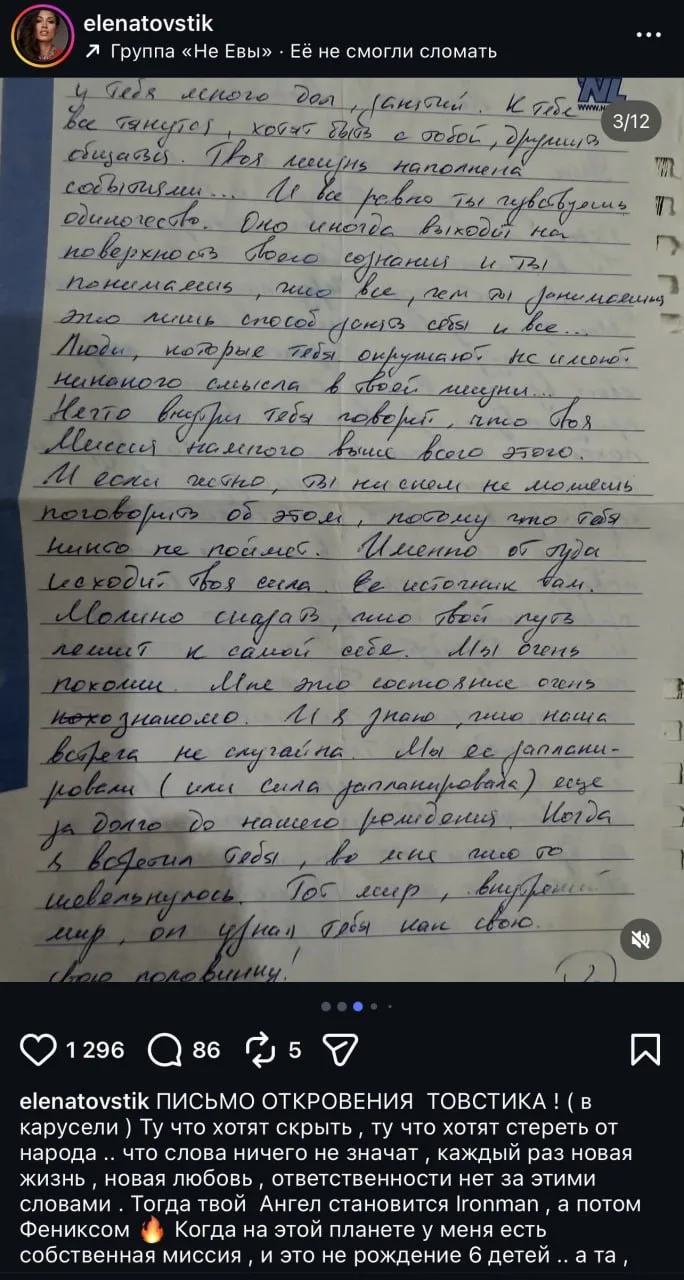 elenatovstik
Группа «Не Евы» · Её не смогли сломать
NL
WWW.
3/12
у тебя много дел, занятий. К тебе
все тянутся, хотят быть с тобой, дружить
общаться. Твоя жизнь наполнена
событиями... И все равно ты чувствуешь
одиночество. Оно иногда выходит на
поверхность твоего сознания и ты
понимаешь, что все, чем ты занимаешься
это лишь способ занять себя и все...
Люди, которые тебя окружают не имеют
никакого смысла в твоей жизни...
Нечто внутри тебя говорит, что твоя
Миссия намного выше всего этого.
И если честно, ты ни с кем не можешь
поговорить об этом, потому что тебя
никто не поймет. Именно от туда
исходит твоя сила. Ее источник там.
Можно сказать, что твой путь
лежит к самой себе. Мы очень
похожи. Мне это состояние очень
знакомо. И я знаю, что наша
встреча не случайна. Мы ее заплани-
ровали (или сила запланировала) еще
за долго до нашего рождения. Когда
я встретил тебя, во мне что то
шевельнулось. Тот мир, внутренний
мир, он узнал тебя как свою
свою половинку!
1 296
86
5
elenatovstik ПИСЬМО ОТКРОВЕНИЯ ТОВСТИКА ! ( в
карусели ) Ту что хотят скрыть , ту что хотят стереть от
народа .. что слова ничего не значат , каждый раз новая
жизнь , новая любовь , ответственности нет за этими
словами . Тогда твой Ангел становится Ironman , а потом
Фениксом 🔥 Когда на этой планете у меня есть
собственная миссия , и это не рождение 6 детей .. а та ,